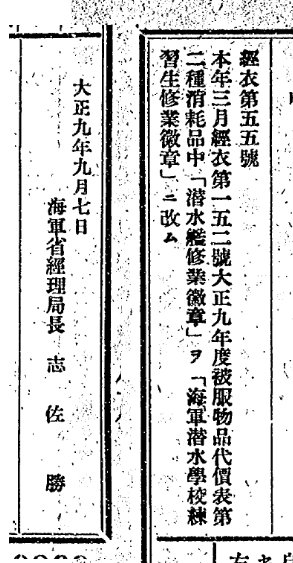 經衣第五五號
本年三月經衣第一五二號大正九年度被服物品代價表第
二種消耗品中「潛水艦修業徽章」ヲ「海軍潛水學校練
習生修業徽章」ニ改ム
大正九年九月七日
海軍省經理局長 志佐勝